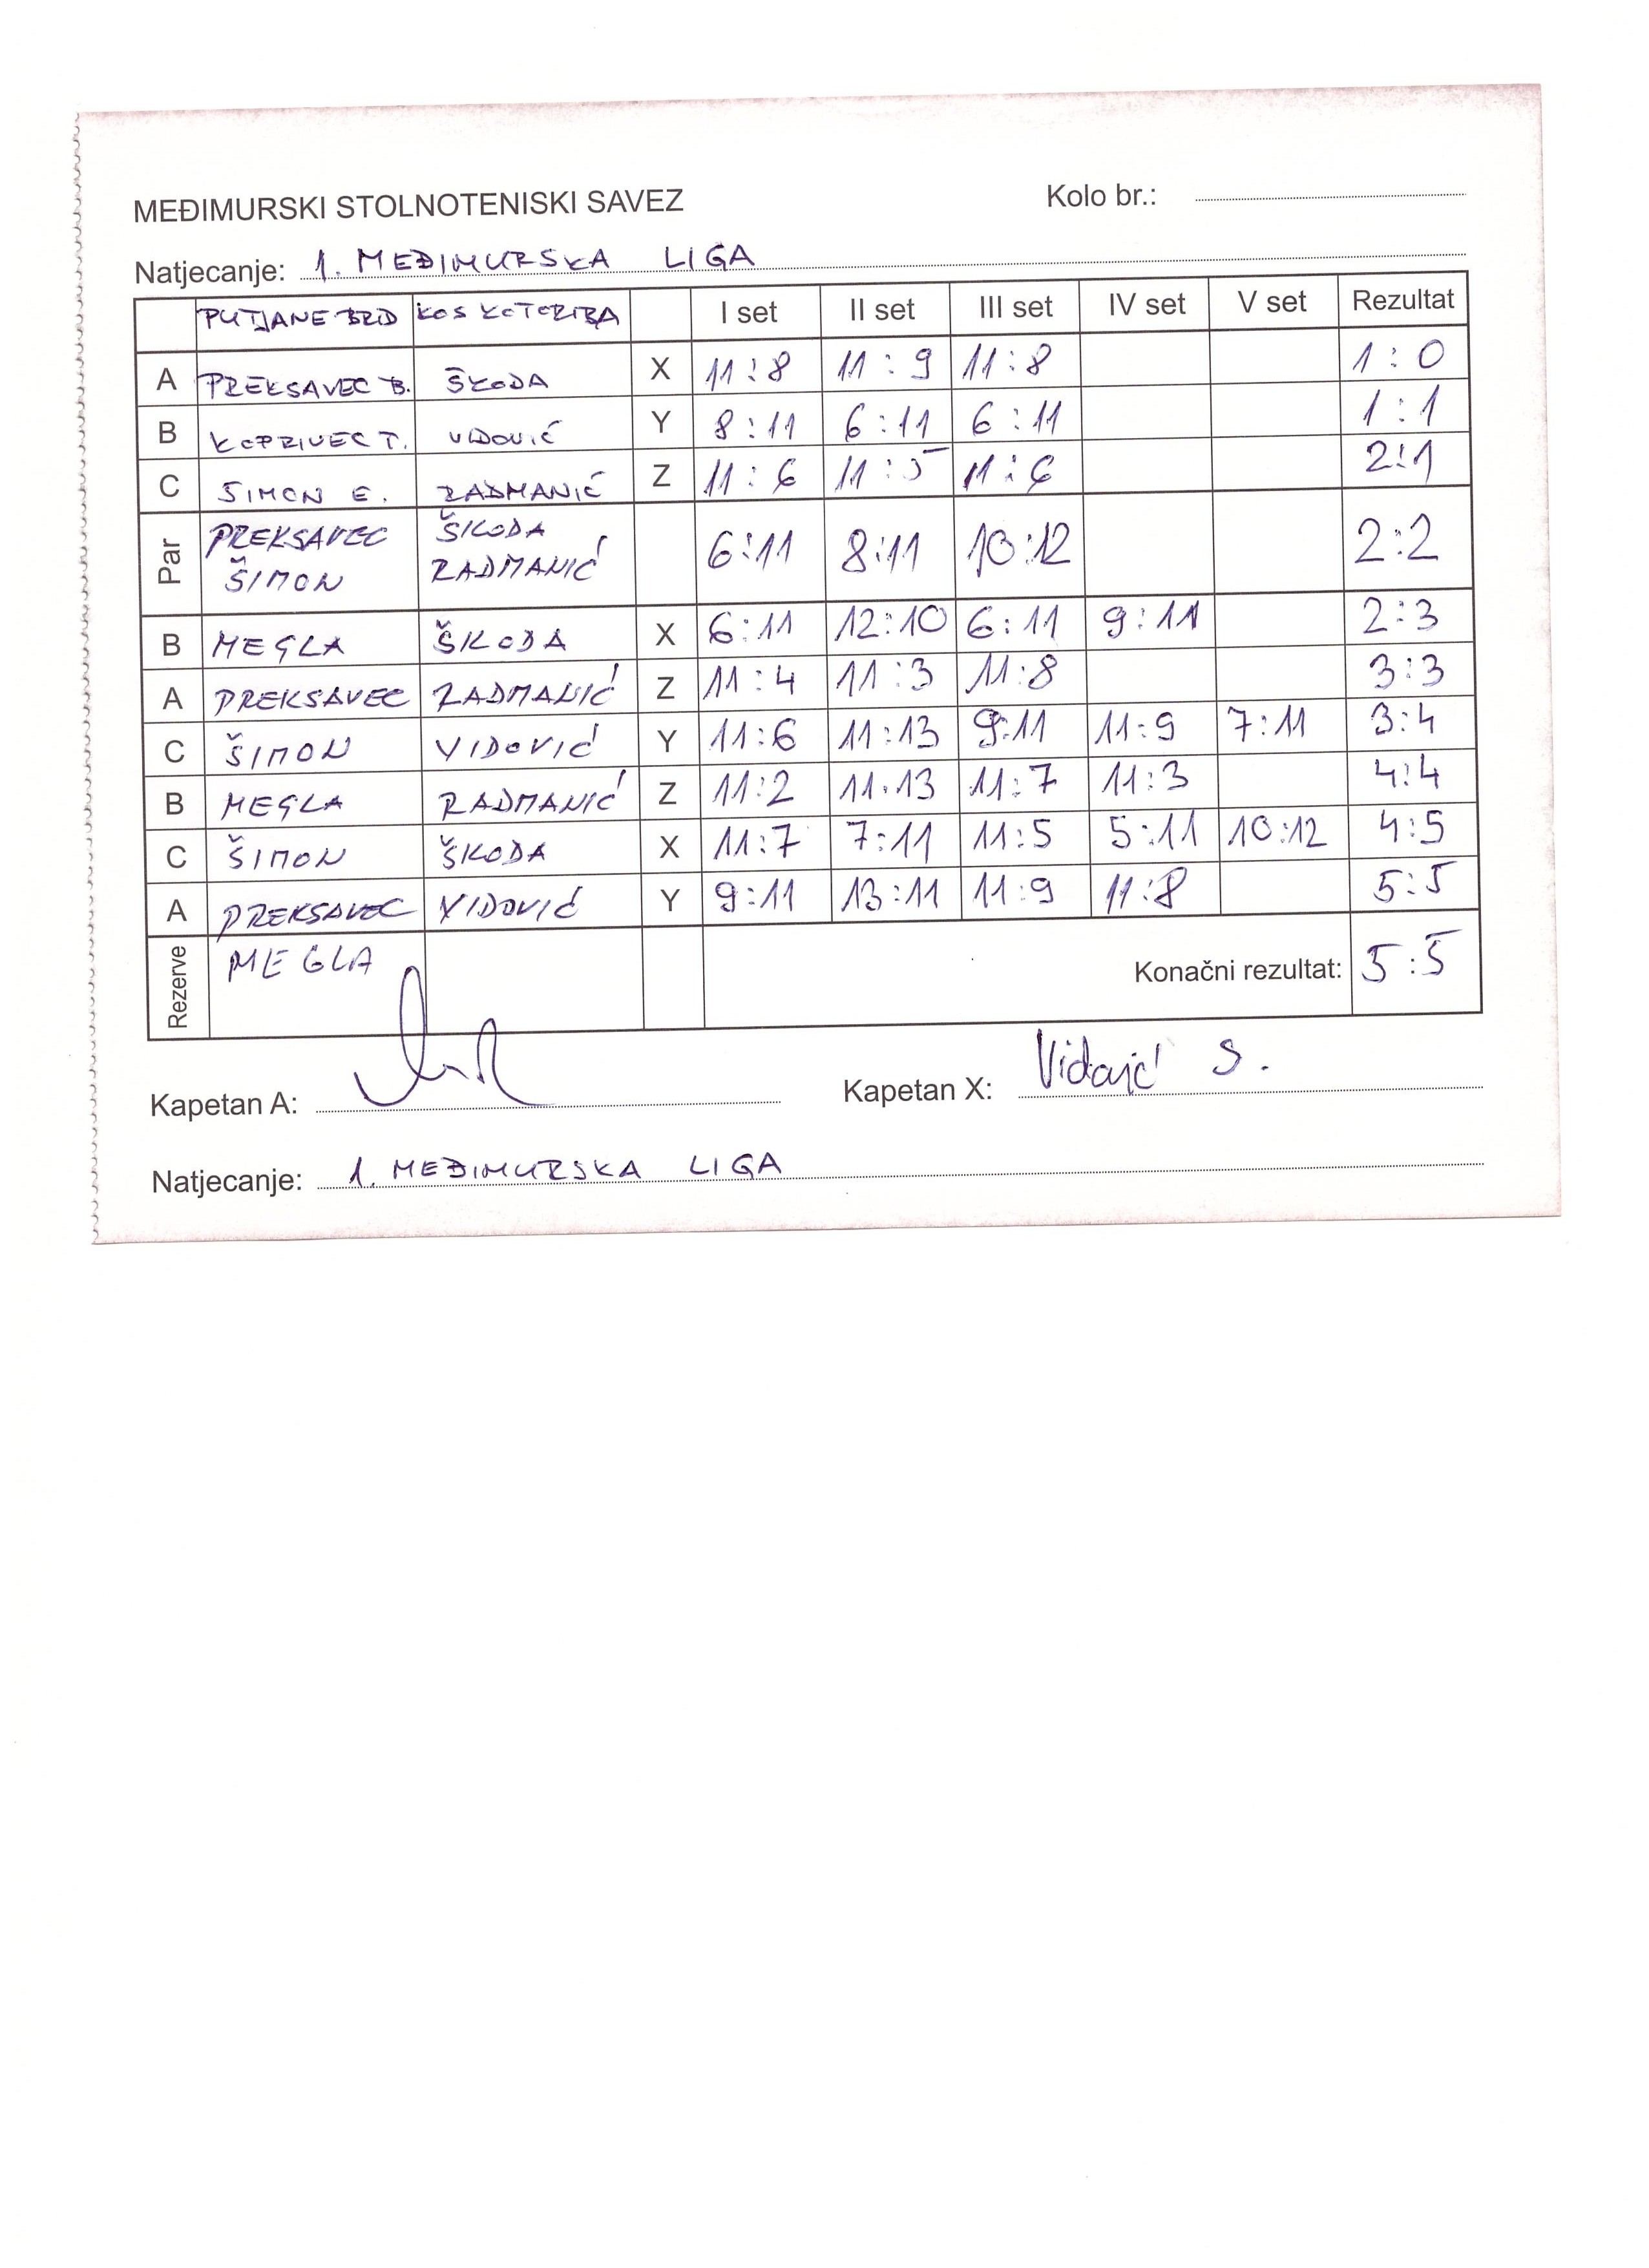 MEĐIMURSKI STOLNOTENISKI SAVEZ Kolo br.:
Natjecanje: 1. MEĐIMURSKA LIGA
PUTJANE BRD KOS KOTORIBA I set II set III set IV set V set Rezultat
A PREKSAVEC B. ŠKODA X 11:8 11:9 11:8 1:0
B KOPRIVEC T. VIDOVIĆ Y 8:11 6:11 6:11 1:1
C SIMON E. RADMANIĆ Z 11:6 11:5 11:6 2:1
Par PREKSAVEC ŠKODA 6:11 8:11 10:12 2:2
ŠIMON RADMANIĆ
B MEGLA ŠKODA X 6:11 12:10 6:11 9:11 2:3
A PREKSAVEC RADMANIĆ Z 11:4 11:3 11:8 3:3
C ŠIMON VIDOVIĆ Y 11:6 11:13 9:11 11:9 7:11 3:4
B MEGLA RADMANIĆ Z 11:2 11.13 11:7 11:3 4:4
C ŠIMON ŠKODA X 11:7 7:11 11:5 5:11 10:12 4:5
A PREKSAVEC VIDOVIĆ Y 9:11 13:11 11:9 11:8 5:5
Rezerve MEGLA Konačni rezultat: 5:5
Kapetan A: Kapetan X: S.
Natjecanje: 1. MEĐIMURSKA LIGA